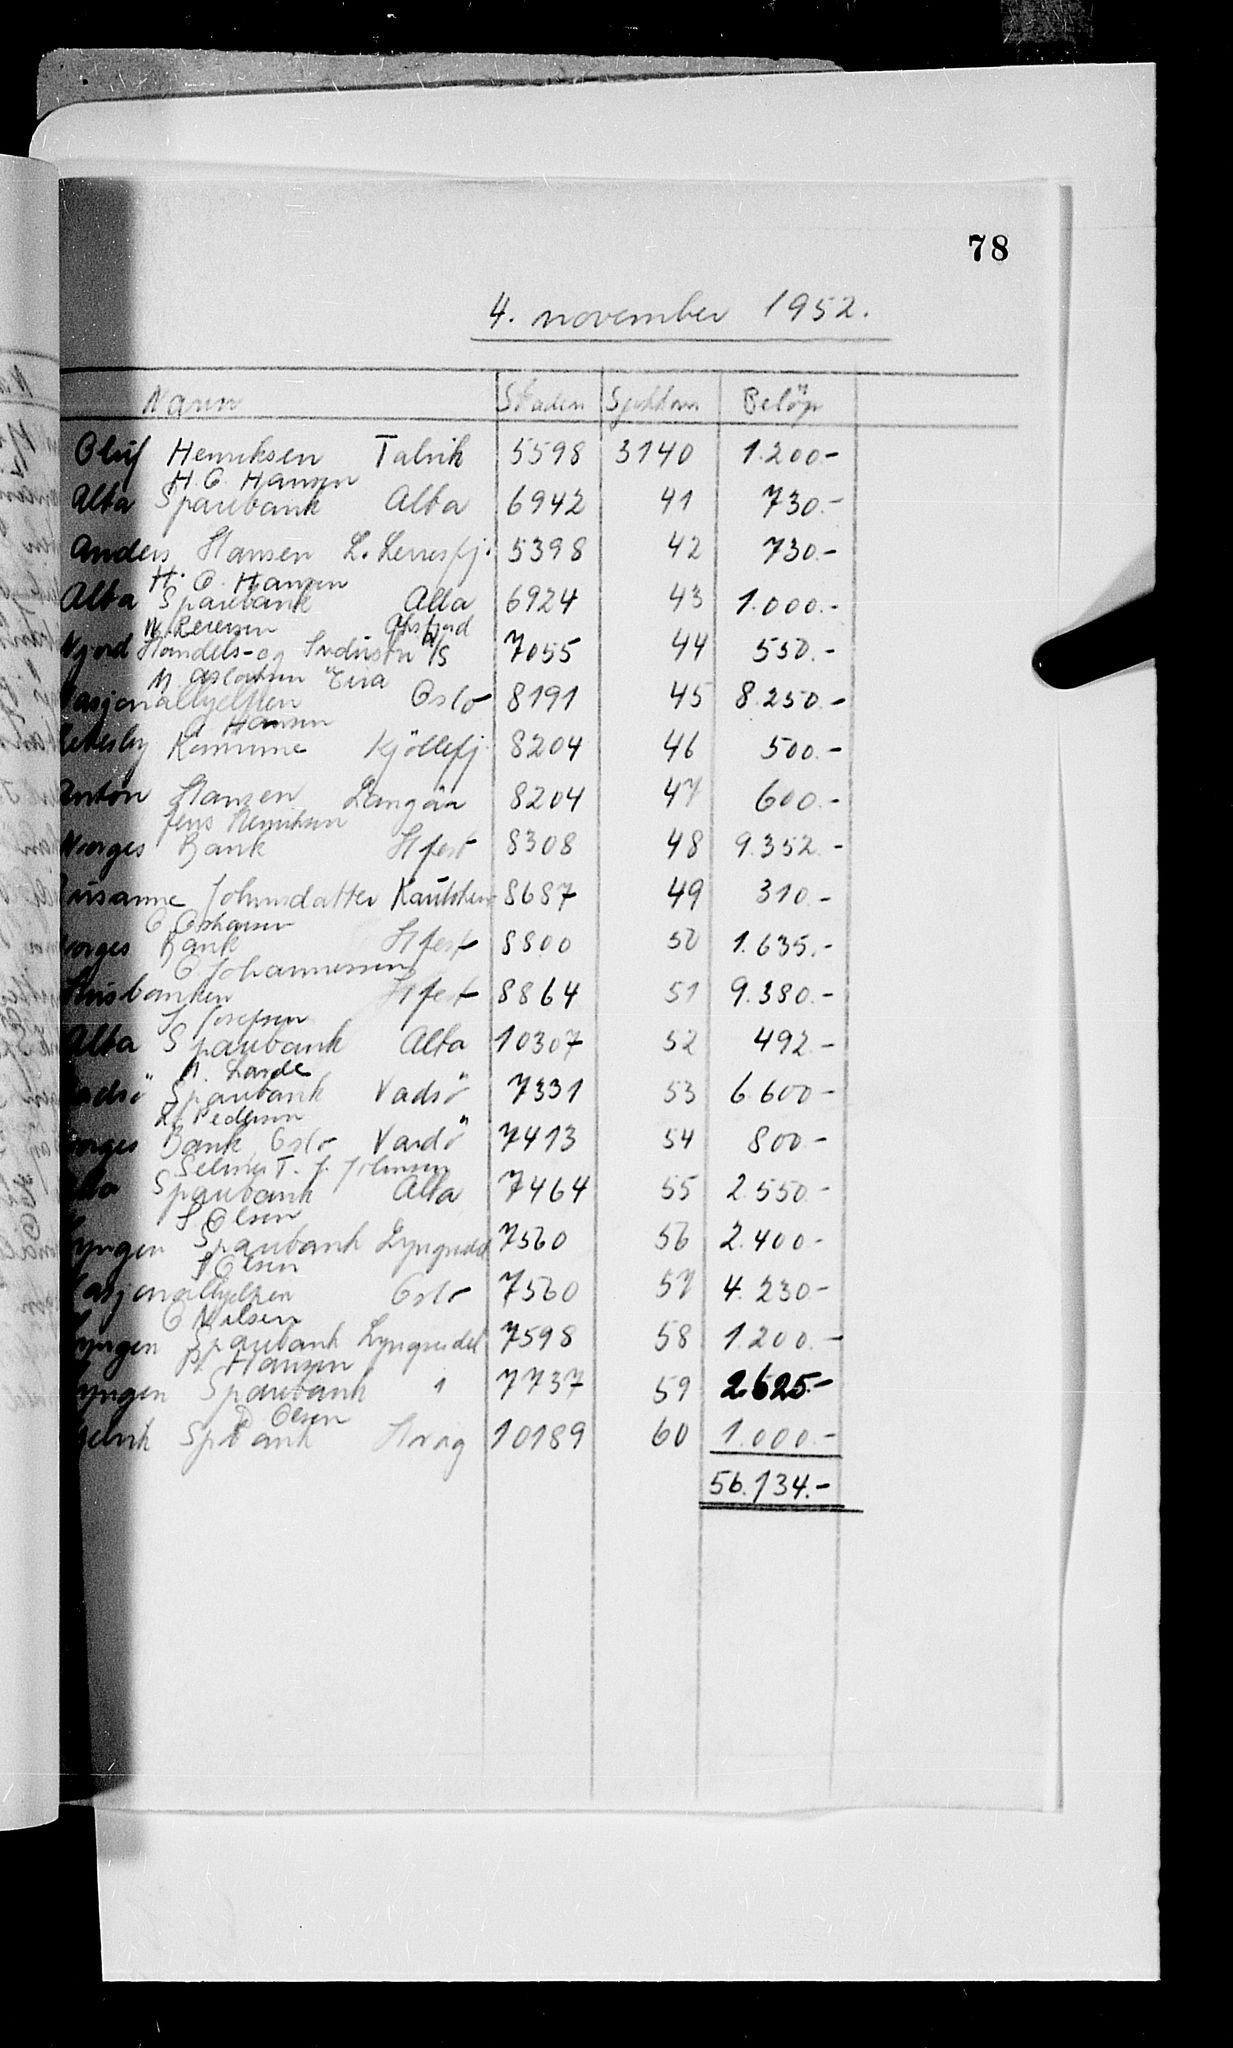 78
4. november 1952.
Navn Skaden Sjekknr Beløp
Oluf Henriksen Talvik 5598 3140 1.200.-
H. C. Hansen
Alta Sparebank Alta 6942 41 730.-
Anders Hansen L. Lerresfj. 5398 42 730.-
H. C. Hansen
Alta Sparebank Alta 6924 43 1.000.-
Njord Handels- og Industri A/S 7055 44 550.-
Nasjonalhjelpen Oslo 8191 45 8.250.-
Hansen
Lebesby Komune Kjöllefj. 8204 46 500.-
Anton Hansen Langöa 8204 47 600.-
Jens Henriksen
Norges Bank Hfest 8308 48 9.352.-
Susanne Johnsdatter Kautoken 8687 49 310.-
Norges Bank Hfest 8800 50 1.635.-
O Johannessen
Husbanken Hfest 8864 51 9.380.-
J Josefsen
Alta Sparebank Alta 10307 52 492.-
Vadsö Sparebank Vadsö 7331 53 6.600-
L. Pedersen
Norges Bank, Oslo Vardö 7413 54 800.-
Selmer T. J. Johnsen
Alta Sparebank Alta 7464 55 2.550.-
S Olsen
Lyngen Sparebank Lyngseidet 7560 56 2.400.-
S Olsen
Nasjonalhjelpen Oslo 7560 57 4.230.-
O Nilsen
Lyngen Sparebank Lyngseidet 7598 58 1.200.-
Hansen
Lyngen Sparebank " 7737 59 2.625.-
Olsen
Spbank 10189 60 1.000.-
56.134.-